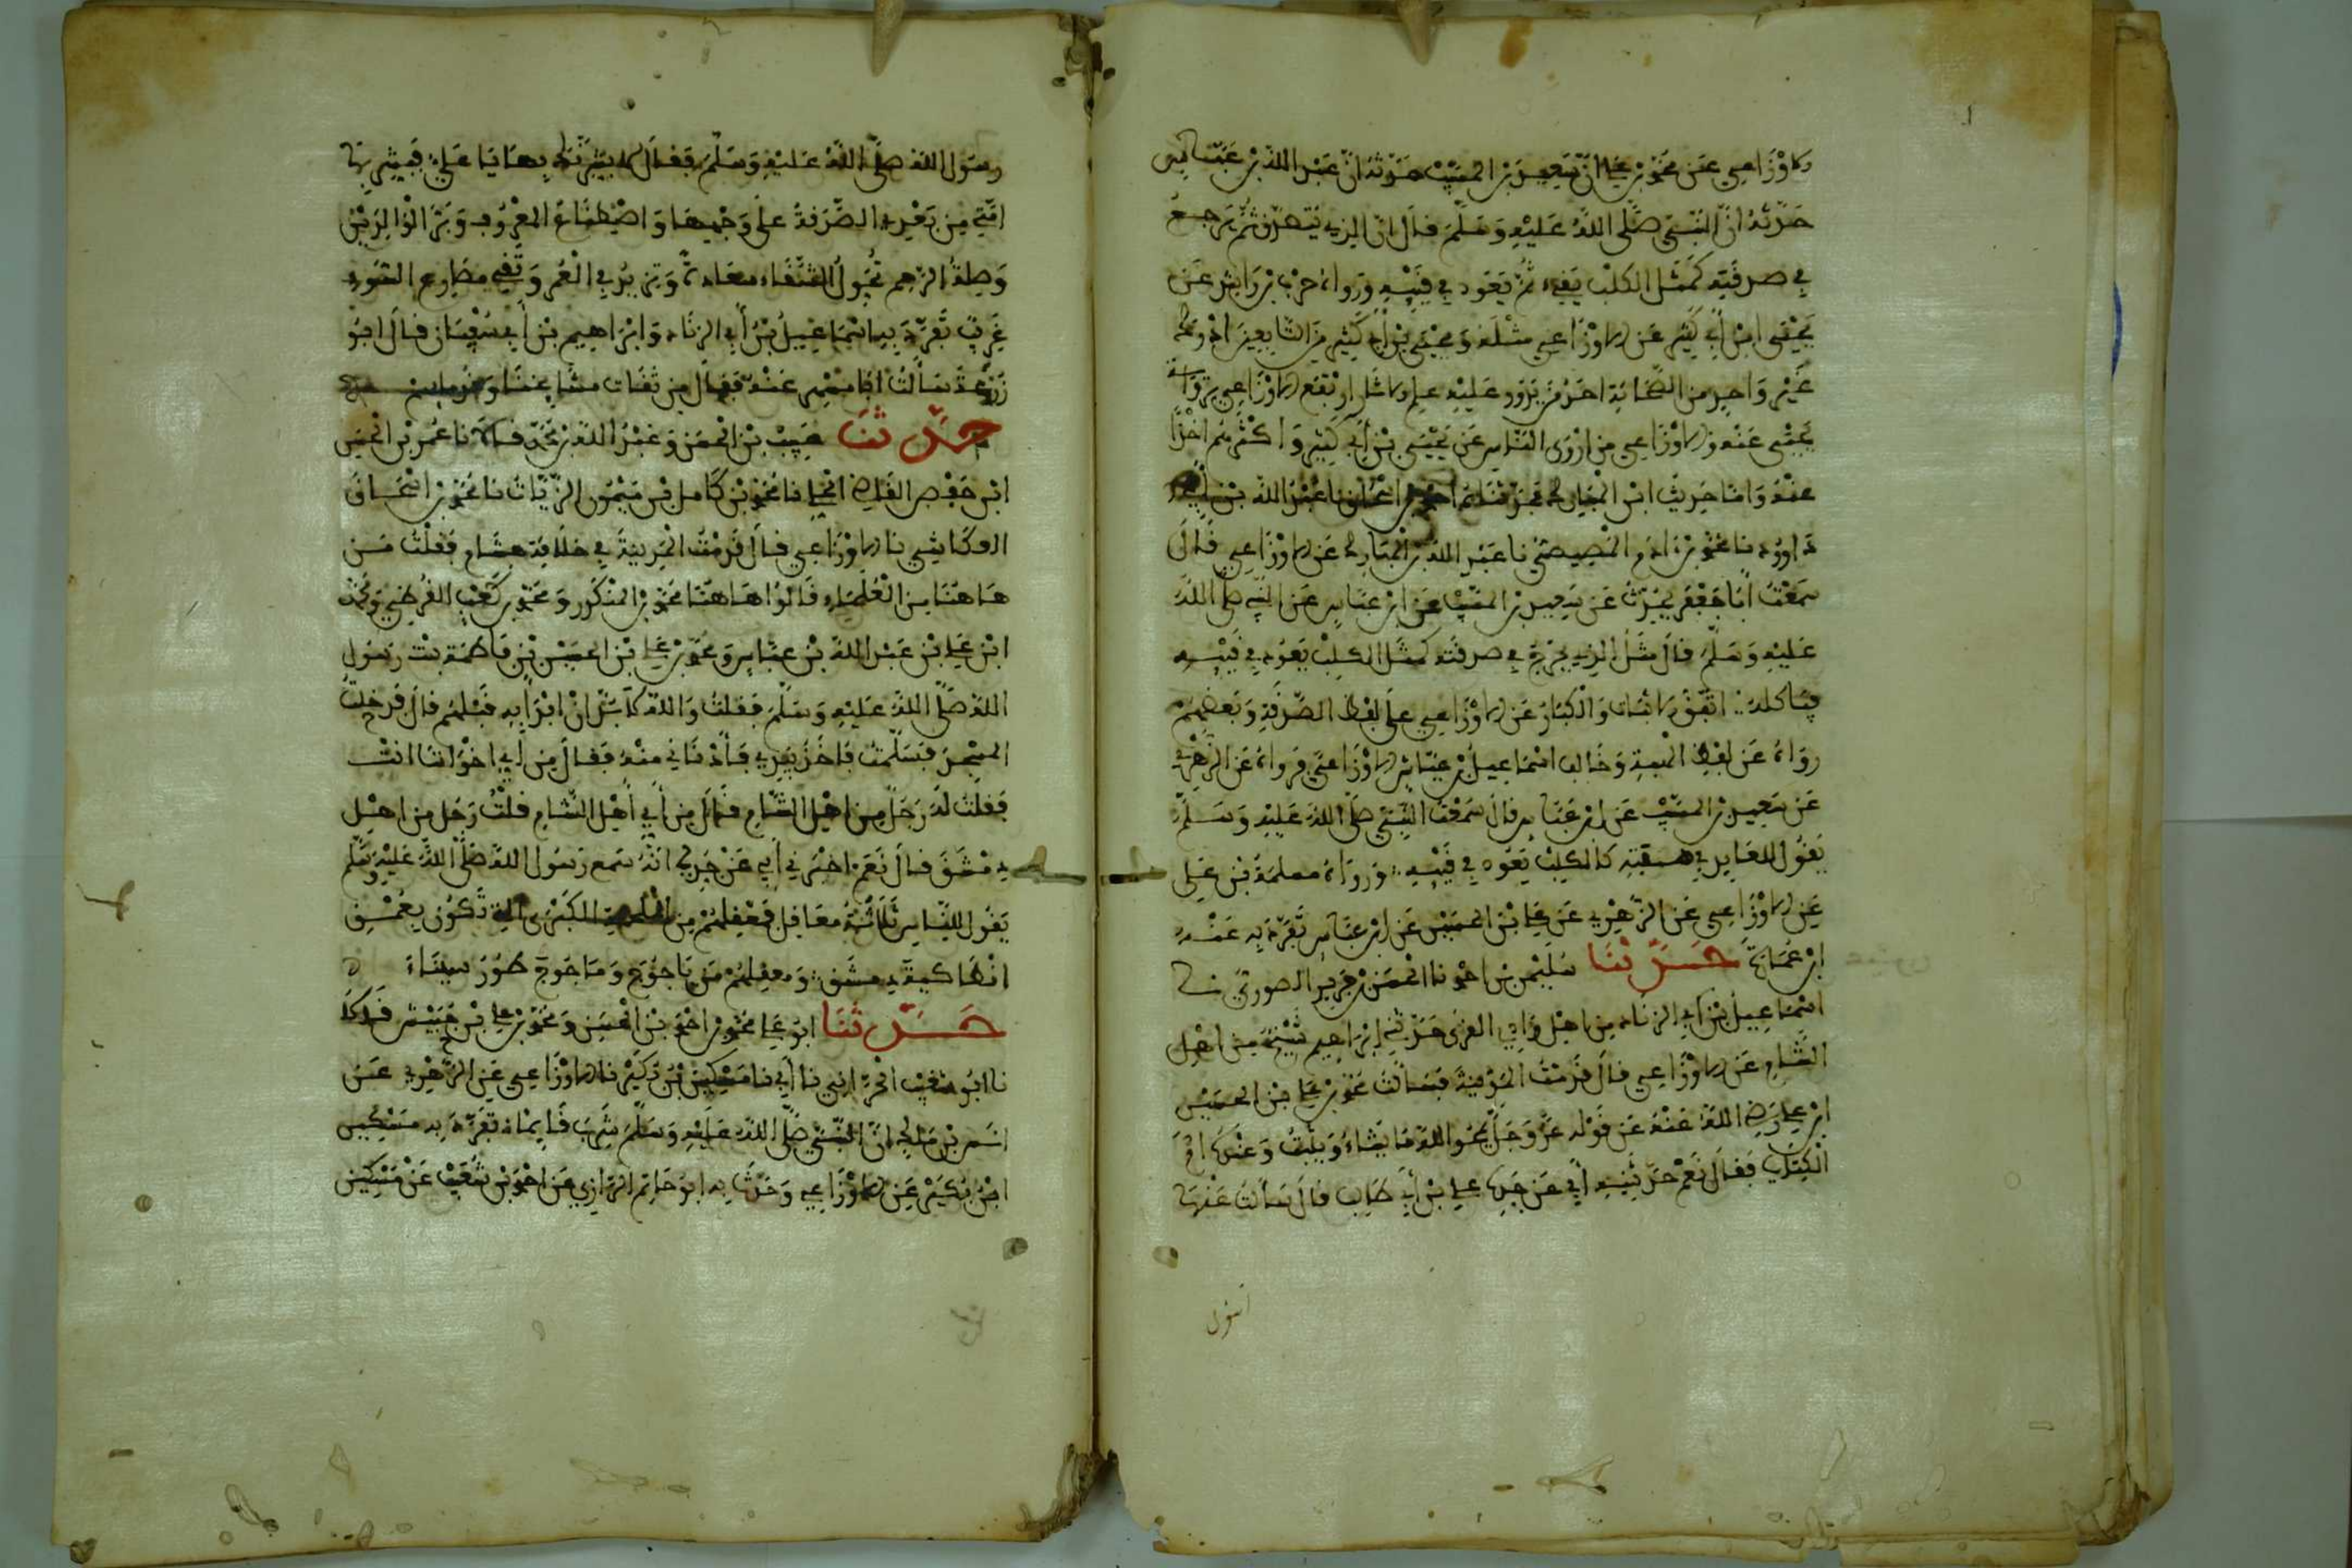 الاوزاعي عن محمد بن علي ان سعيد بن المسيب حدثه ان عبد الله بن عباس
حدثه ان النبي صلى الله عليه وسلم قال ان الذي يتصدق ثم يرجع
في صدقته كمثل الكلب يقيء ثم يعود في قيئه ورواه حرب بن عن
يحيى ابن أبي كثير عن الاوزاعي مثله ويحيى بن أبي كثير من التابعين
غير واحد من الصحابة احد من يدور عليه علم الاوزاعي
يحيى عنه والاوزاعي من اروى الناس عن يحيى بن أبي كثير واكثرهم اخذا
عنه واما حديث ابن المبارك فحدثناه عبد الله بن
داوود نا محمد بن ادم المصيصي نا عبد الله بن المبارك عن الاوزاعي قال
سمعت أبا جعفر يحدث عن سعيد بن المسيب عن ابن عباس عن النبي صلى الله
عليه وسلم قال مثل الذي يرجع في صدقته كمثل الكلب يعود في قيئه
فياكله اتفق الاثبات والكبار عن الاوزاعي على لفظ الصدقة وبعضهم
رواه عن لفظ الهبة وخالف اسماعيل بن عياش الاوزاعي فرواه عن الزهري
عن سعيد بن المسيب عن ابن عباس قال سمعت النبي صلى الله عليه وسلم
يقول العايد في هبته كالكلب يعود في قيئه ورواه مسلمة بن علي
عن الاوزاعي عن الزهري عن علي بن الحسين عن ابن عباس تفرد به عنه
ابن عمارة حدثنا سليمن بن احمد نا الحسن بن جرير الصوري نا
اسماعيل بن أبي الزناد من اهل وادي القرى حدثني إبراهيم شيخ من اهل
الشام عن الاوزاعي قال قدمت المدينة فسالت محمد بن علي بن الحسين
ابن علي رضي الله عنه عن قوله عز وجل يمحوا الله ما يشاء ويثبت وعنده ام
الكتاب فقال نعم حدثنيه أبي عن جده علي بن أبي طالب قال سالت عنها
رسول الله صلى الله عليه وسلم فقال لابشرنك بها يا علي فبشر بها
امتي من بعدي الصدقة على وجهها واصطناع المعروف وبر الوالدين
وصلة الرحم تحول الشقاء سعادة وتزيد في العمر وتقي مصارع السوء
غريب تفرد به اسماعيل بن أبي الزناد وابراهيم بن أبي سفيان قال ابو
زرعة سألت ابا مسهر عنه فقال من ثقات مشايخنا
حدثنا حبيب بن الحسن وعبد الله بن محمد قالا نا عمر بن الحسن
ابن حفص القاضي الحلبي نا محمد بن كامل بن ميمون الزيات نا محمد بن اسحاق
العكاشي نا الاوزاعي قال قدمت المدينة في خلافة هشام فقلت من
هاهنا من العلماء قالوا هاهنا محمد بن المنكدر ومحمد بن كعب القرظي ومحمد
ابن علي بن عبد الله بن عباس ومحمد بن علي بن الحسين بن فاطمة بنت رسول
الله صلى الله عليه وسلم فقلت والله لابدان بهذا قبلهم قال فدخلت
المسجد فسلمت فاخذ بيدي فأدناني منه فقال من أي اخواننا انت
فقلت له رجل من اهل الشام فقال من أي أهل الشام قلت رجل من اهل
دمشق قال نعم اخبرني أبي عن جدي انه سمع رسول الله صلى الله عليه وسلم
يقول للناس ثلاثة معاقل فمعقلهم من الملحمة الكبرى التي تكون بعمق
انطاكية دمشق ومعقلهم من ياجوج وماجوج طور سيناء
حدثنا ابو علي محمد بن احمد بن الحسن ومحمد بن علي بن حبيش قالا
نا ابو شعيب الحراني نا أبي نا مسكين بن بكير نا الاوزاعي عن الزهري عن
انس بن مالك ان النبي صلى الله عليه وسلم شرب قايما تفرد به مسكين
ابن بكير عن الاوزاعي وحدث به ابو حاتم الرازي عن احمد بن شعيب عن مسكين